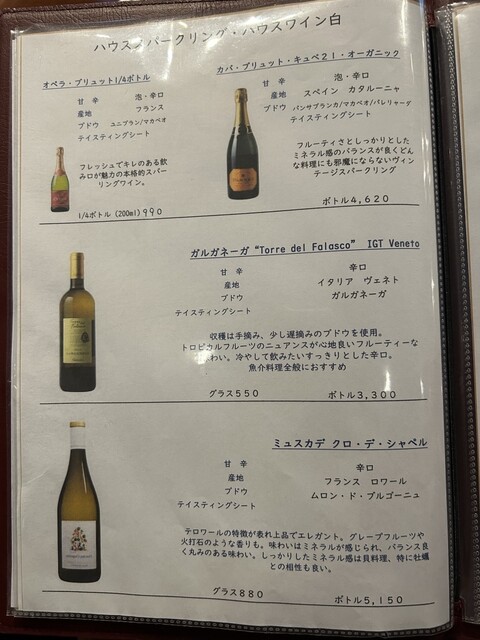 ハウススパークリング・ハウスワイン白
オペラ・ブリュット1/4ボトル
甘 辛 泡・辛口
産地 フランス
ブドウ ユニブラン/マカベオ
テイスティングシート
フレッシュでキレのある飲
み口が魅力の本格的スパー
リングワイン。
1/4ボトル (200ml) 990
カバ・ブリュット・キュベ21・オーガニック
甘 辛 泡・辛口
産地 スペイン カタルーニャ
ブドウ パンサブランカ/マカベオ/パレリャーダ
テイスティングシート
フルーティさとしっかりとした
ミネラル感のバランスが良くどん
な料理にも邪魔にならないヴィン
テージスパークリング
ボトル4,620
ガルガネーガ“Torre del Falasco” IGT Veneto
甘 辛 辛口
産地 イタリア ヴェネト
ブドウ ガルガネーガ
テイスティングシート
収穫は手摘み、少し遅摘みのブドウを使用。
トロピカルフルーツのニュアンスが心地良いフルーティーな
味わい。冷やして飲みたいすっきりとした辛口。
魚介料理全般におすすめ
グラス550 ボトル3,300
ミュスカデ クロ・デ・シャペル
甘 辛 辛口
産地 フランス ロワール
ブドウ ムロン・ド・ブルゴーニュ
テイスティングシート
テロワールの特徴が表れ上品でエレガント。グレープフルーツや
火打石のような香りも。味わいはミネラルが感じられ、バランス良
く丸みのある味わい。しっかりしたミネラル感は貝料理、特に牡蠣
との相性も良い。
グラス880 ボトル5,150